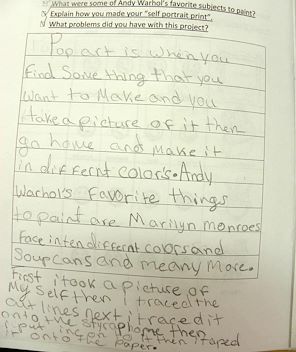 What were some of Andy Warhol's favorite subjects to paint?
Explain how you made your "self portrait print".
What problems did you have with this project?
Pop art is when you
find Some thing that you
want to Make and you
take a picture of it then
go home and make it
in differnt color's. Andy
Warhol's favorite things
to paint are Marilyn monroes
face in ten differnt colors and
Soup cans and meany More.
First i took a picture of
My Self then i traced the
out lines next i traced it
onto the styrophome then
i put inc on to it then i taped
it onto the paper.